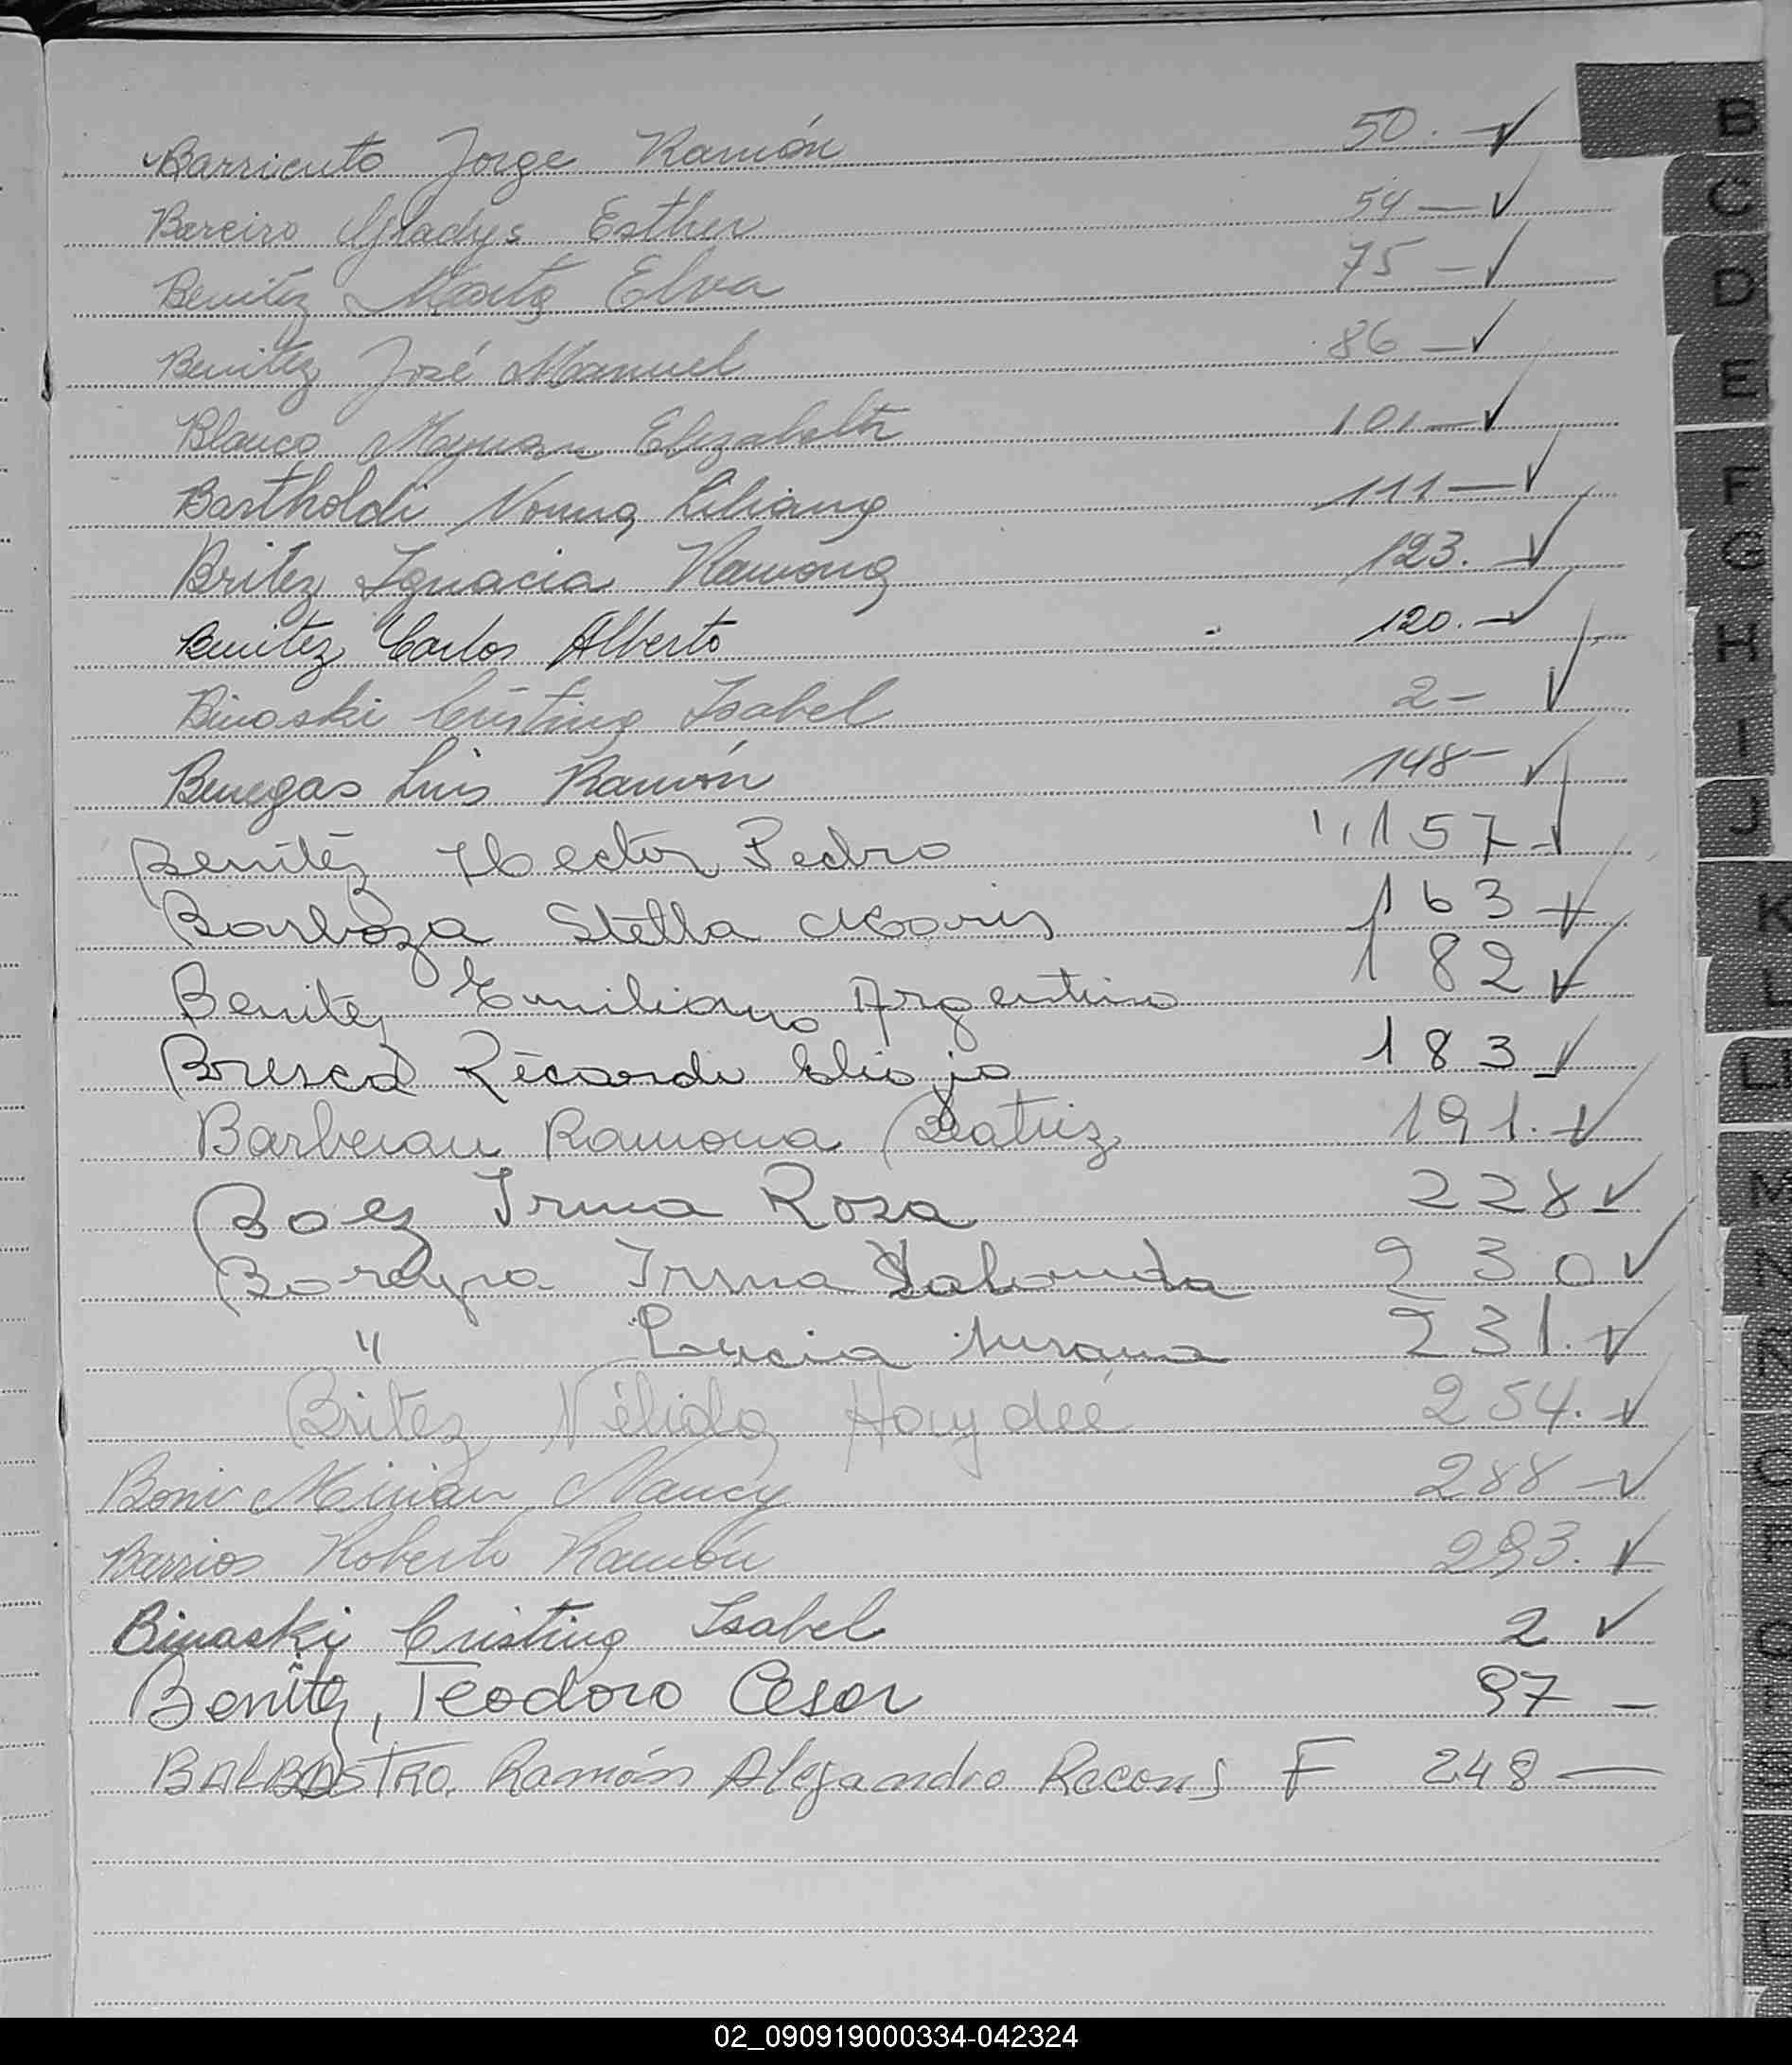 Barriento Jorge Ramón 50. - ✓
Bareiro Gladys Esther 54 - ✓
Benitez Marta Elva 75 - ✓
Benitez José Manuel 86 - ✓
Blanco Myrian Elizabeth 101 - ✓
Bartholdi Norma Liliana 111 - ✓
Britez Ignacia Ramona 123. - ✓
Benitez Carlos Alberto 120. - ✓
Binaski Cristina Isabel 2 - ✓
Benegas Luis Ramón 148 - ✓
Benítez Hector Pedro 157 - ✓
Barboza Stella Maris 163 - ✓
Benitez Emiliano Argentino 182 ✓
Bresca Ricardo 183 - ✓
Barberan Ramona Beatriz 191. - ✓
Baez Irma Rosa 228 - ✓
Bareyro Irma 230 ✓
" Lucia Susana 231. - ✓
Britez Nélida Haydeé 254. - ✓
Boni Mirian Nancy 288 - ✓
Barrios Roberto Ramón 293. ✓
Binaski Cristina Isabel 2 ✓
Benítez, Teodoro Cesar 97 -
BALBASTRO Ramón Alejandro F 248 -
B
C
D
E
F
G
H
I
J
K
L
LL
M
N
Ñ
O
02_090919000334-042324